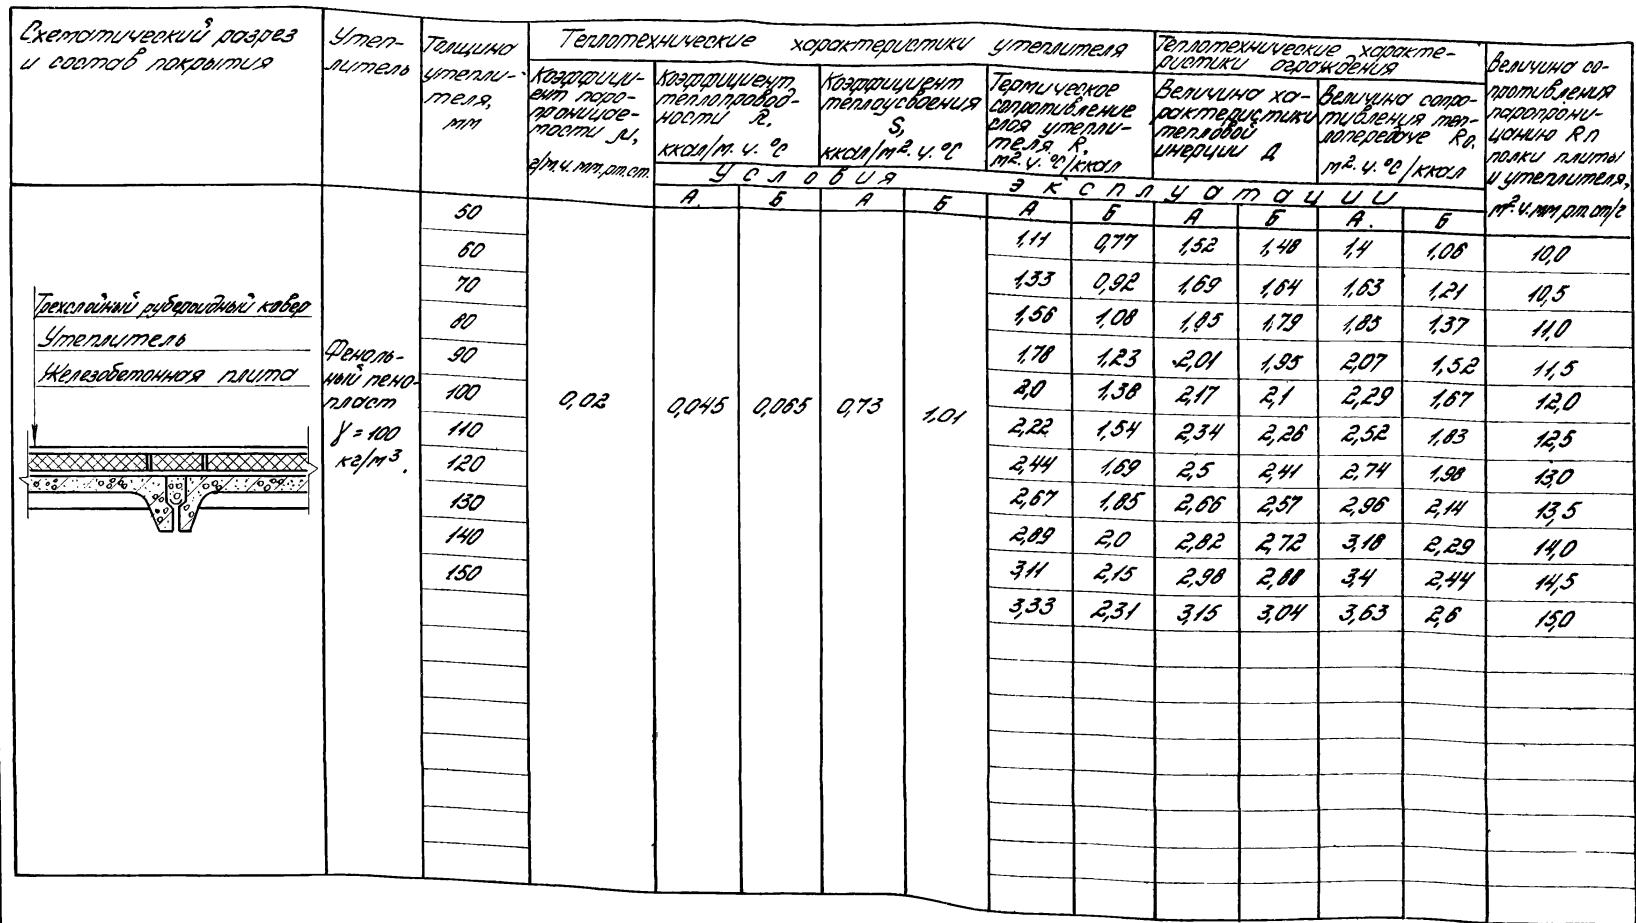 Схематический разрез
и состав покрытия
Утеп-
литель
Толщина
утепли-
теля,
мм
Теплотехнические характеристики утеплителя
Коэффици-
ент паро-
проницае-
мости μ,
г/м.ч.мм.рт.ст.
Коэффициент
теплопровод-
ности λ,
ккал/м.ч.°С
Коэффициент
теплоусвоения
S,
ккал/м².ч.°С
Термическое
сопротивление
слоя утепли-
теля R,
м².ч.°С/ккал
Теплотехнические характе-
ристики ограждения
Величина ха-
рактеристики
тепловой
инерции Д
Величина сопро-
тивления теп-
лопередаче R₀,
м².ч.°С/ккал
Величина со-
противления
паропрони-
цанию Rп
полки плиты
и утеплителя,
м².ч.мм рт.ст/г
Условия эксплуатации
А. Б А Б А Б А Б А. Б
Трехслойный рубероидный ковер
Утеплитель
Железобетонная плита
Феноль-
ный пено-
пласт
γ = 100
кг/м³.
0,02 0,045 0,065 0,73 1,01
50 1,11 0,77 1,52 1,48 1,4 1,06 10,0
60 1,33 0,92 1,69 1,64 1,63 1,21 10,5
70 1,56 1,08 1,85 1,79 1,85 1,37 11,0
80 1,78 1,23 2,01 1,95 2,07 1,52 11,5
90 2,0 1,38 2,17 2,1 2,29 1,67 12,0
100 2,22 1,54 2,34 2,26 2,52 1,83 12,5
110 2,44 1,69 2,5 2,41 2,74 1,98 13,0
120 2,67 1,85 2,66 2,57 2,96 2,14 13,5
130 2,89 2,0 2,82 2,72 3,18 2,29 14,0
140 3,11 2,15 2,98 2,88 3,4 2,44 14,5
150 3,33 2,31 3,15 3,04 3,63 2,6 15,0